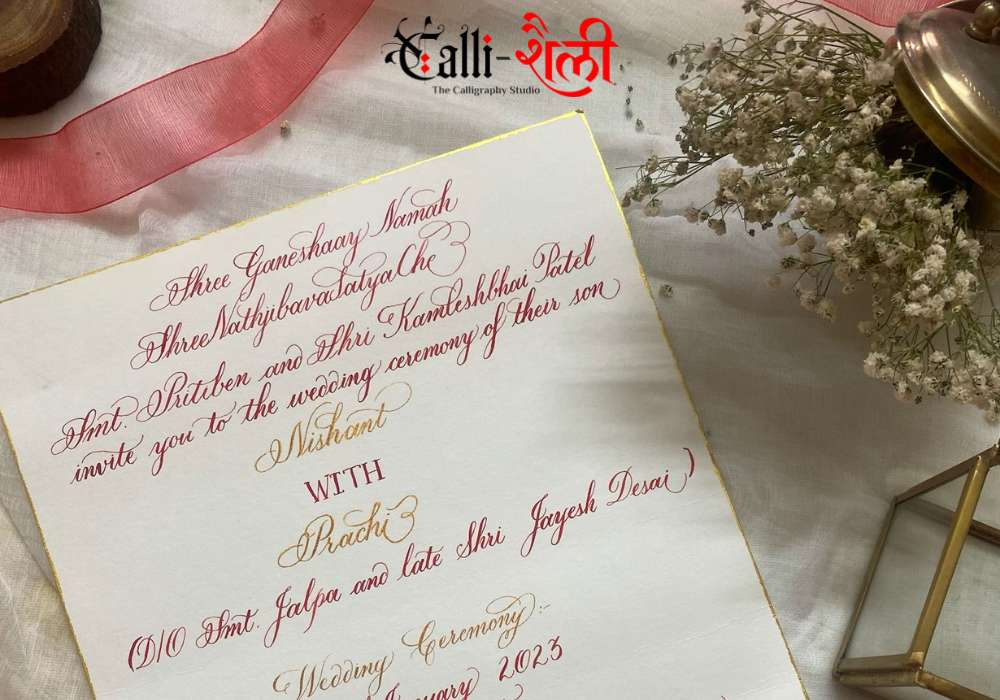 Calli-शैली
The Calligraphy Studio
Shree Ganeshaay Namah
ShreeNathjibavaSatyaChe
Smt. Pritiben and Shri Kamleshbhai Patel
invite you to the wedding ceremony of their son
Nishant
WITH
Prachi
(D/O Smt. Jalpa and late Shri Jayesh Desai)
Wedding Ceremony:-
January 2023